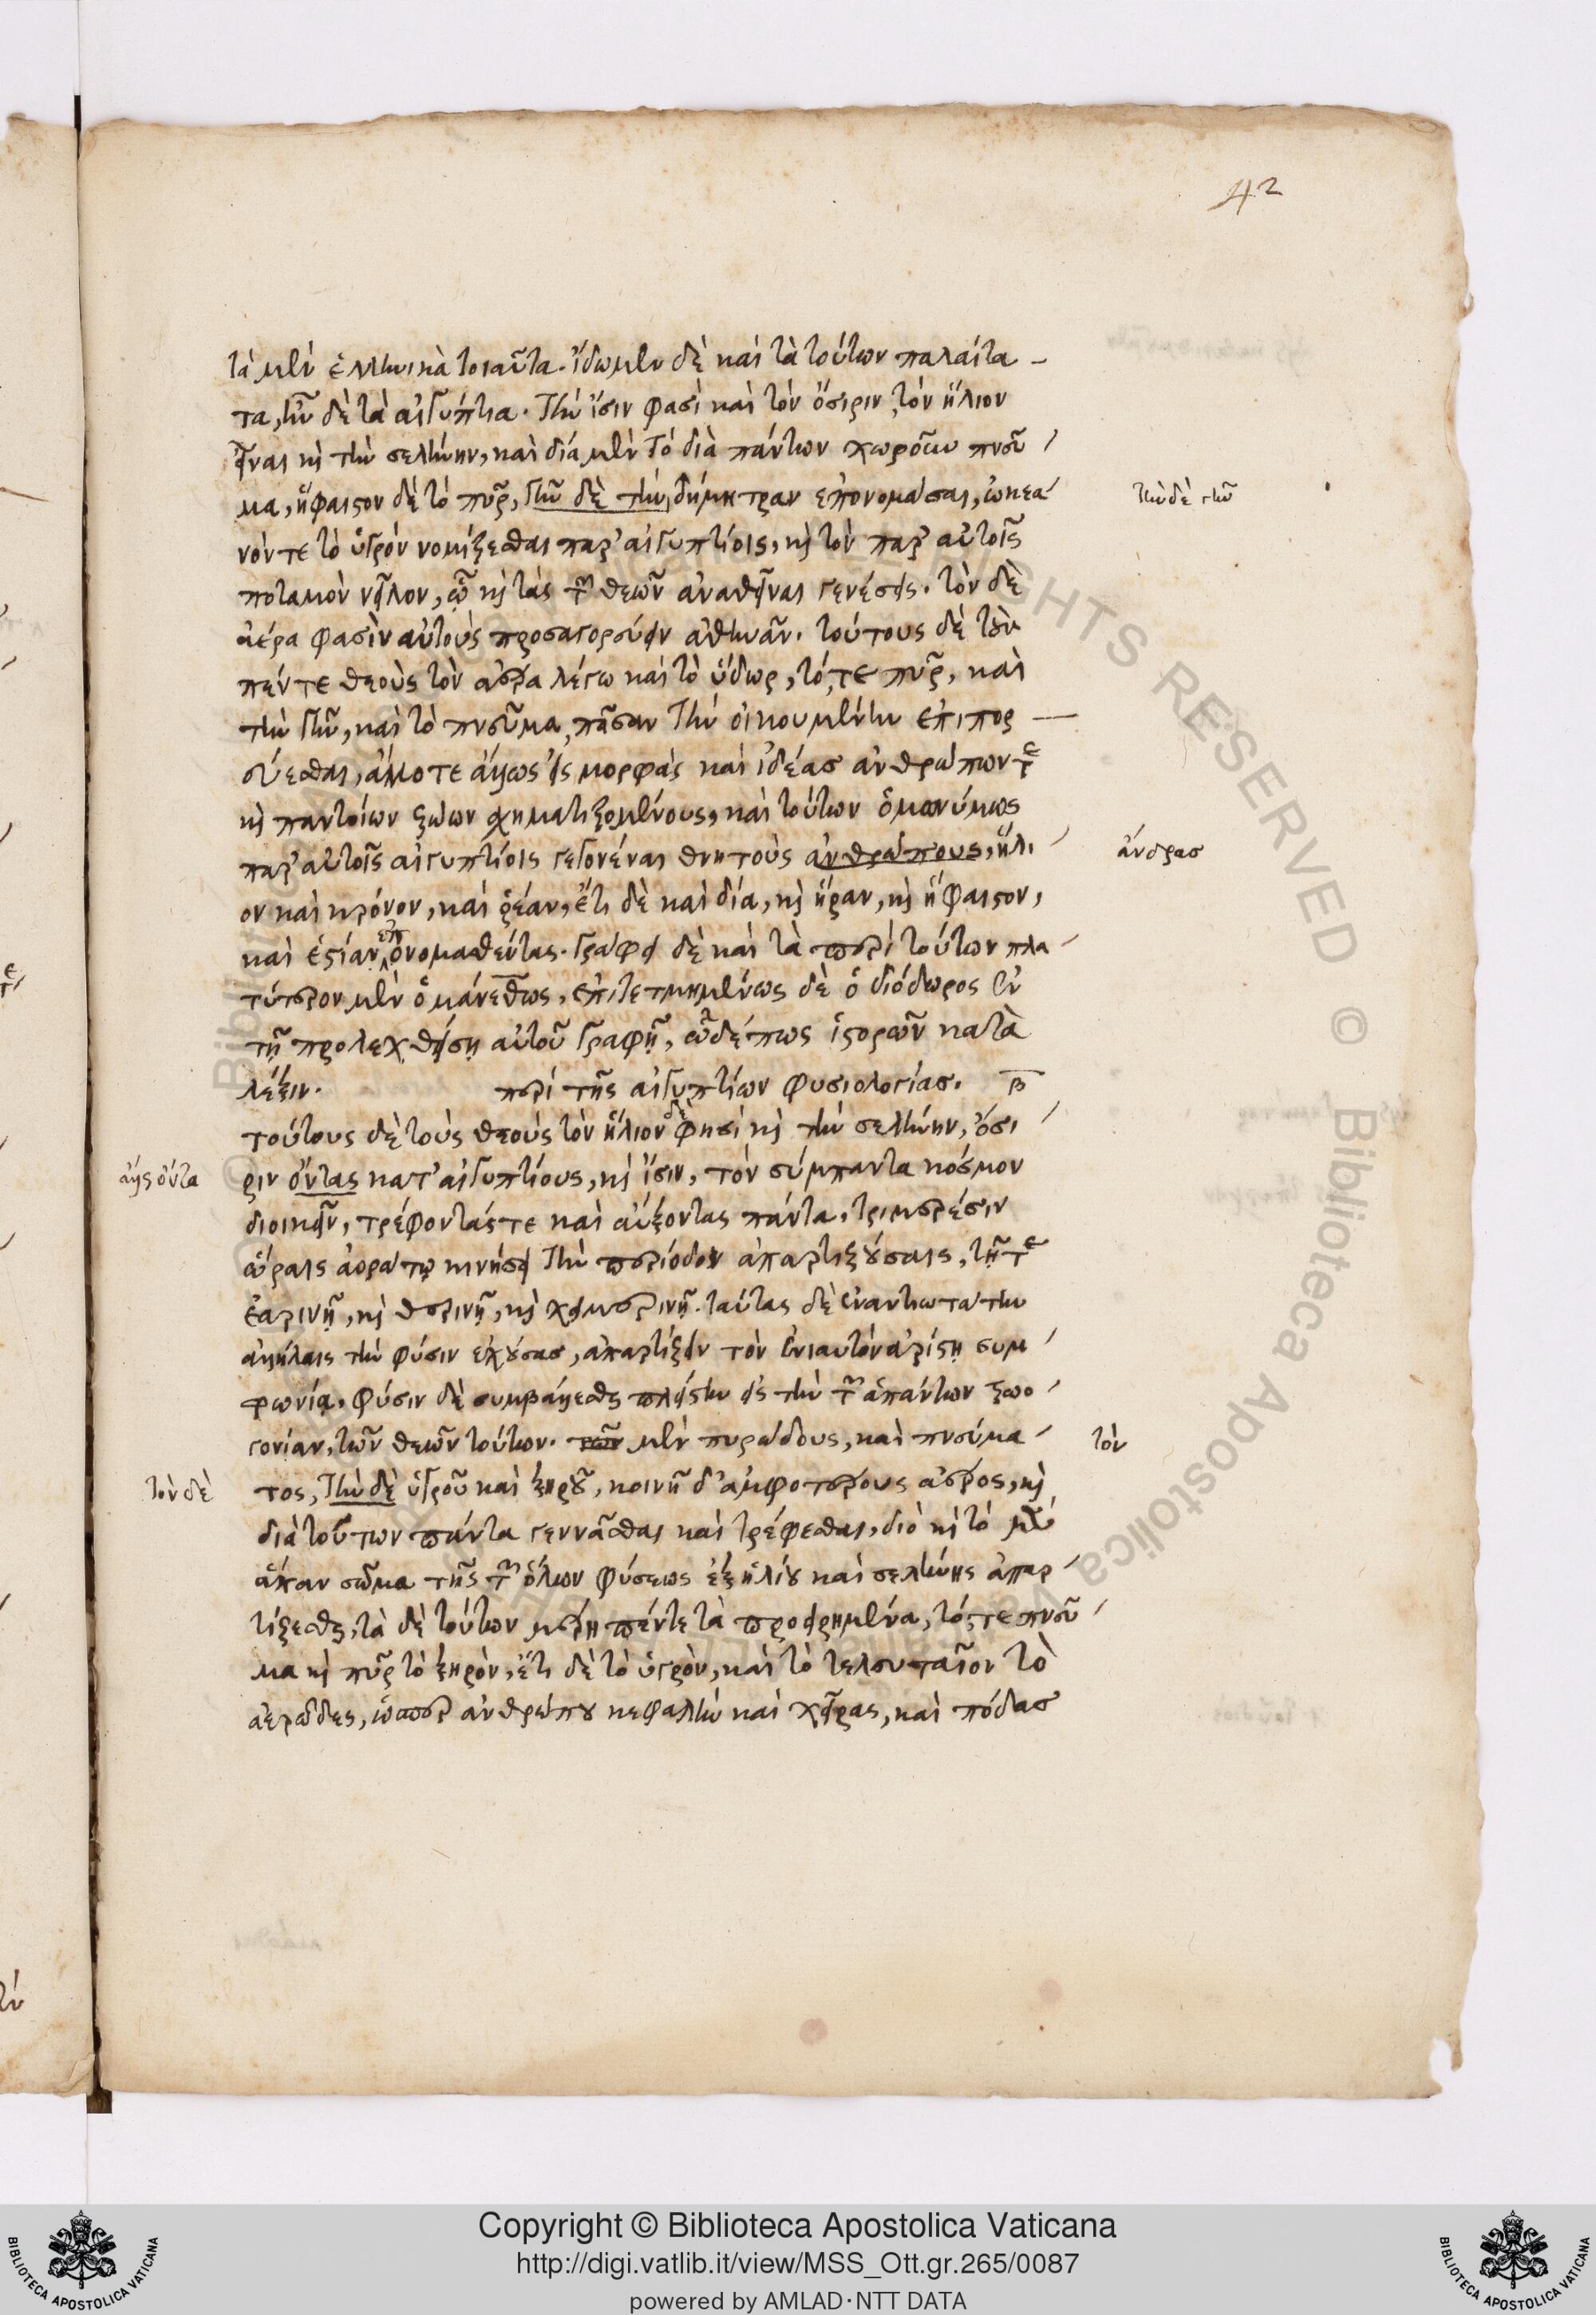 42
τὰ μὲν ἑλληνικὰ τοιαῦτα. ἴδωμεν δὲ καὶ τὰ τούτων παλαίτα –
τα, τῶν δὲ τὰ αἰγύπτια. τὴν ἴσιν φασὶ καὶ τὸν ὄσιριν τὸν ἥλιον
εἶναι κὶ τὴν σελήνην, καὶ δία μὲν τὸ διὰ πάντων χωροῦν πνεῦ
μα, ἥφαιστον δὲ τὸ πῦρ, γῆν δὲ τὴν δήμητραν ἐπονομάσαι, ὠκεα
τὴν δὲ γῆν
νόν τε τὸ ὑγρόν νομίζεσθαι παρ' αἰγυπτίοις, κὶ τὸν παρ' αὐτοῖς
ποταμὸν νεῖλον, ᾧ κὶ τὰς τῶν θεῶν ἀναθεῖναι γενέσεις. τὸν δὲ
ἀέρα φασὶν αὐτοὺς προσαγορεύειν ἀθηνᾶν. τούτους δὲ τοὺς
πέντε θεοὺς τὸν ἀέρα λέγω καὶ τὸ ὕδωρ, τό, τε πῦρ, καὶ
τὴν γῆν, καὶ τὸ πνεῦμα, πᾶσαν τὴν οἰκουμένην ἐπιπορ –
εύεσθαι, ἄλλοτε ἄλλως εἰς μορφὰς καὶ ἰδέας ἀνθρώπων τε
κὶ παντοίων ζώων σχηματιζομένους, καὶ τούτων ὁμωνύμως
παρ' αὐτοῖς αἰγυπτίοις γεγονέναι θνητοὺς ἀνθρώπους, ἥλι
ἄνδρας
ον καὶ κρόνον, καὶ ῥέαν, ἔτι δὲ καὶ δία, κὶ ἥραν, κὶ ἥφαιστον,
καὶ ἑστίαν ἐπονομασθέντας. γράφει δὲ καὶ τὰ περὶ τούτων πλα
τύτερον μὲν ὁ μάνεθως, ἐπιτετμημένως δὲ ὁ διόδωρος ἐν
τῇ προλεχθείσῃ αὐτοῦ γραφῇ, ὧδέ πως ἱστορῶν κατὰ
λέξιν. περὶ τῆς αἰγυπτίων φυσιολογίας. β
τούτους δὲ τοὺς θεοὺς τὸν ἥλιον δέ φησὶ κὶ τὴν σελήνην, ὄσι
ριν ὄντας κατ' αἰγυπτίους, κὶ ἴσιν, τὸν σύμπαντα κόσμον
διοικεῖν, τρέφοντάς τε καὶ αὔξοντας πάντα, τριμερέσιν
ὥραις ἀοράτῳ κινήσει τὴν περίοδον ἀπαρτιζούσαις, τῇ τε
ἐαρινῇ, κὶ θερινῇ, κὶ χειμερινῇ. ταύτας δὲ ἐναντιωτάτην
ἀλλήλαις τὴν φύσιν ἐχούσας, ἀπαρτίζειν τὸν ἐνιαυτὸν ἀρίστῃ συμ
φωνίᾳ. φύσιν δὲ συμβάλλεσθαι πλείστην εἰς τὴν τῶν ἁπάντων ζωο
γονίαν, τῶν θεῶν τούτων. τῶν μὲν πυρώδους, καὶ πνεύμα
τὸν
τος, τὴν δὲ ὑγροῦ καὶ ξηροῦ, κοινῇ δ' ἀμφοτέρους ἀέρος, κὶ
τὸν δὲ
διὰ τούτων πάντα γεννᾶσθαι καὶ τρέφεσθαι, διὸ κὶ τὸ μὲν
ἅπαν σῶμα τῆς τῶν ὅλων φύσεως ἐξ ἡλίου καὶ σελήνης ἀπαρ
τίζεσθαι, τὰ δὲ τούτων μέρη πέντε τὰ προειρημένα, τό, τε πνεῦ
μα κὶ πῦρ τὸ ξηρὸν, ἔτι δὲ τὸ ὑγρὸν, καὶ τὸ τελευταῖον τὸ
ἀερῶδες, ὥσπερ ἀνθρώπου κεφαλὴν καὶ χεῖρας, καὶ πόδας
Copyright © Biblioteca Apostolica Vaticana
http://digi.vatlib.it/view/MSS_Ott.gr.265/0087
powered by AMLAD·NTT DATA
BIBLIOTECA APOSTOLICA VATICANA
BIBLIOTECA APOSTOLICA VATICANA